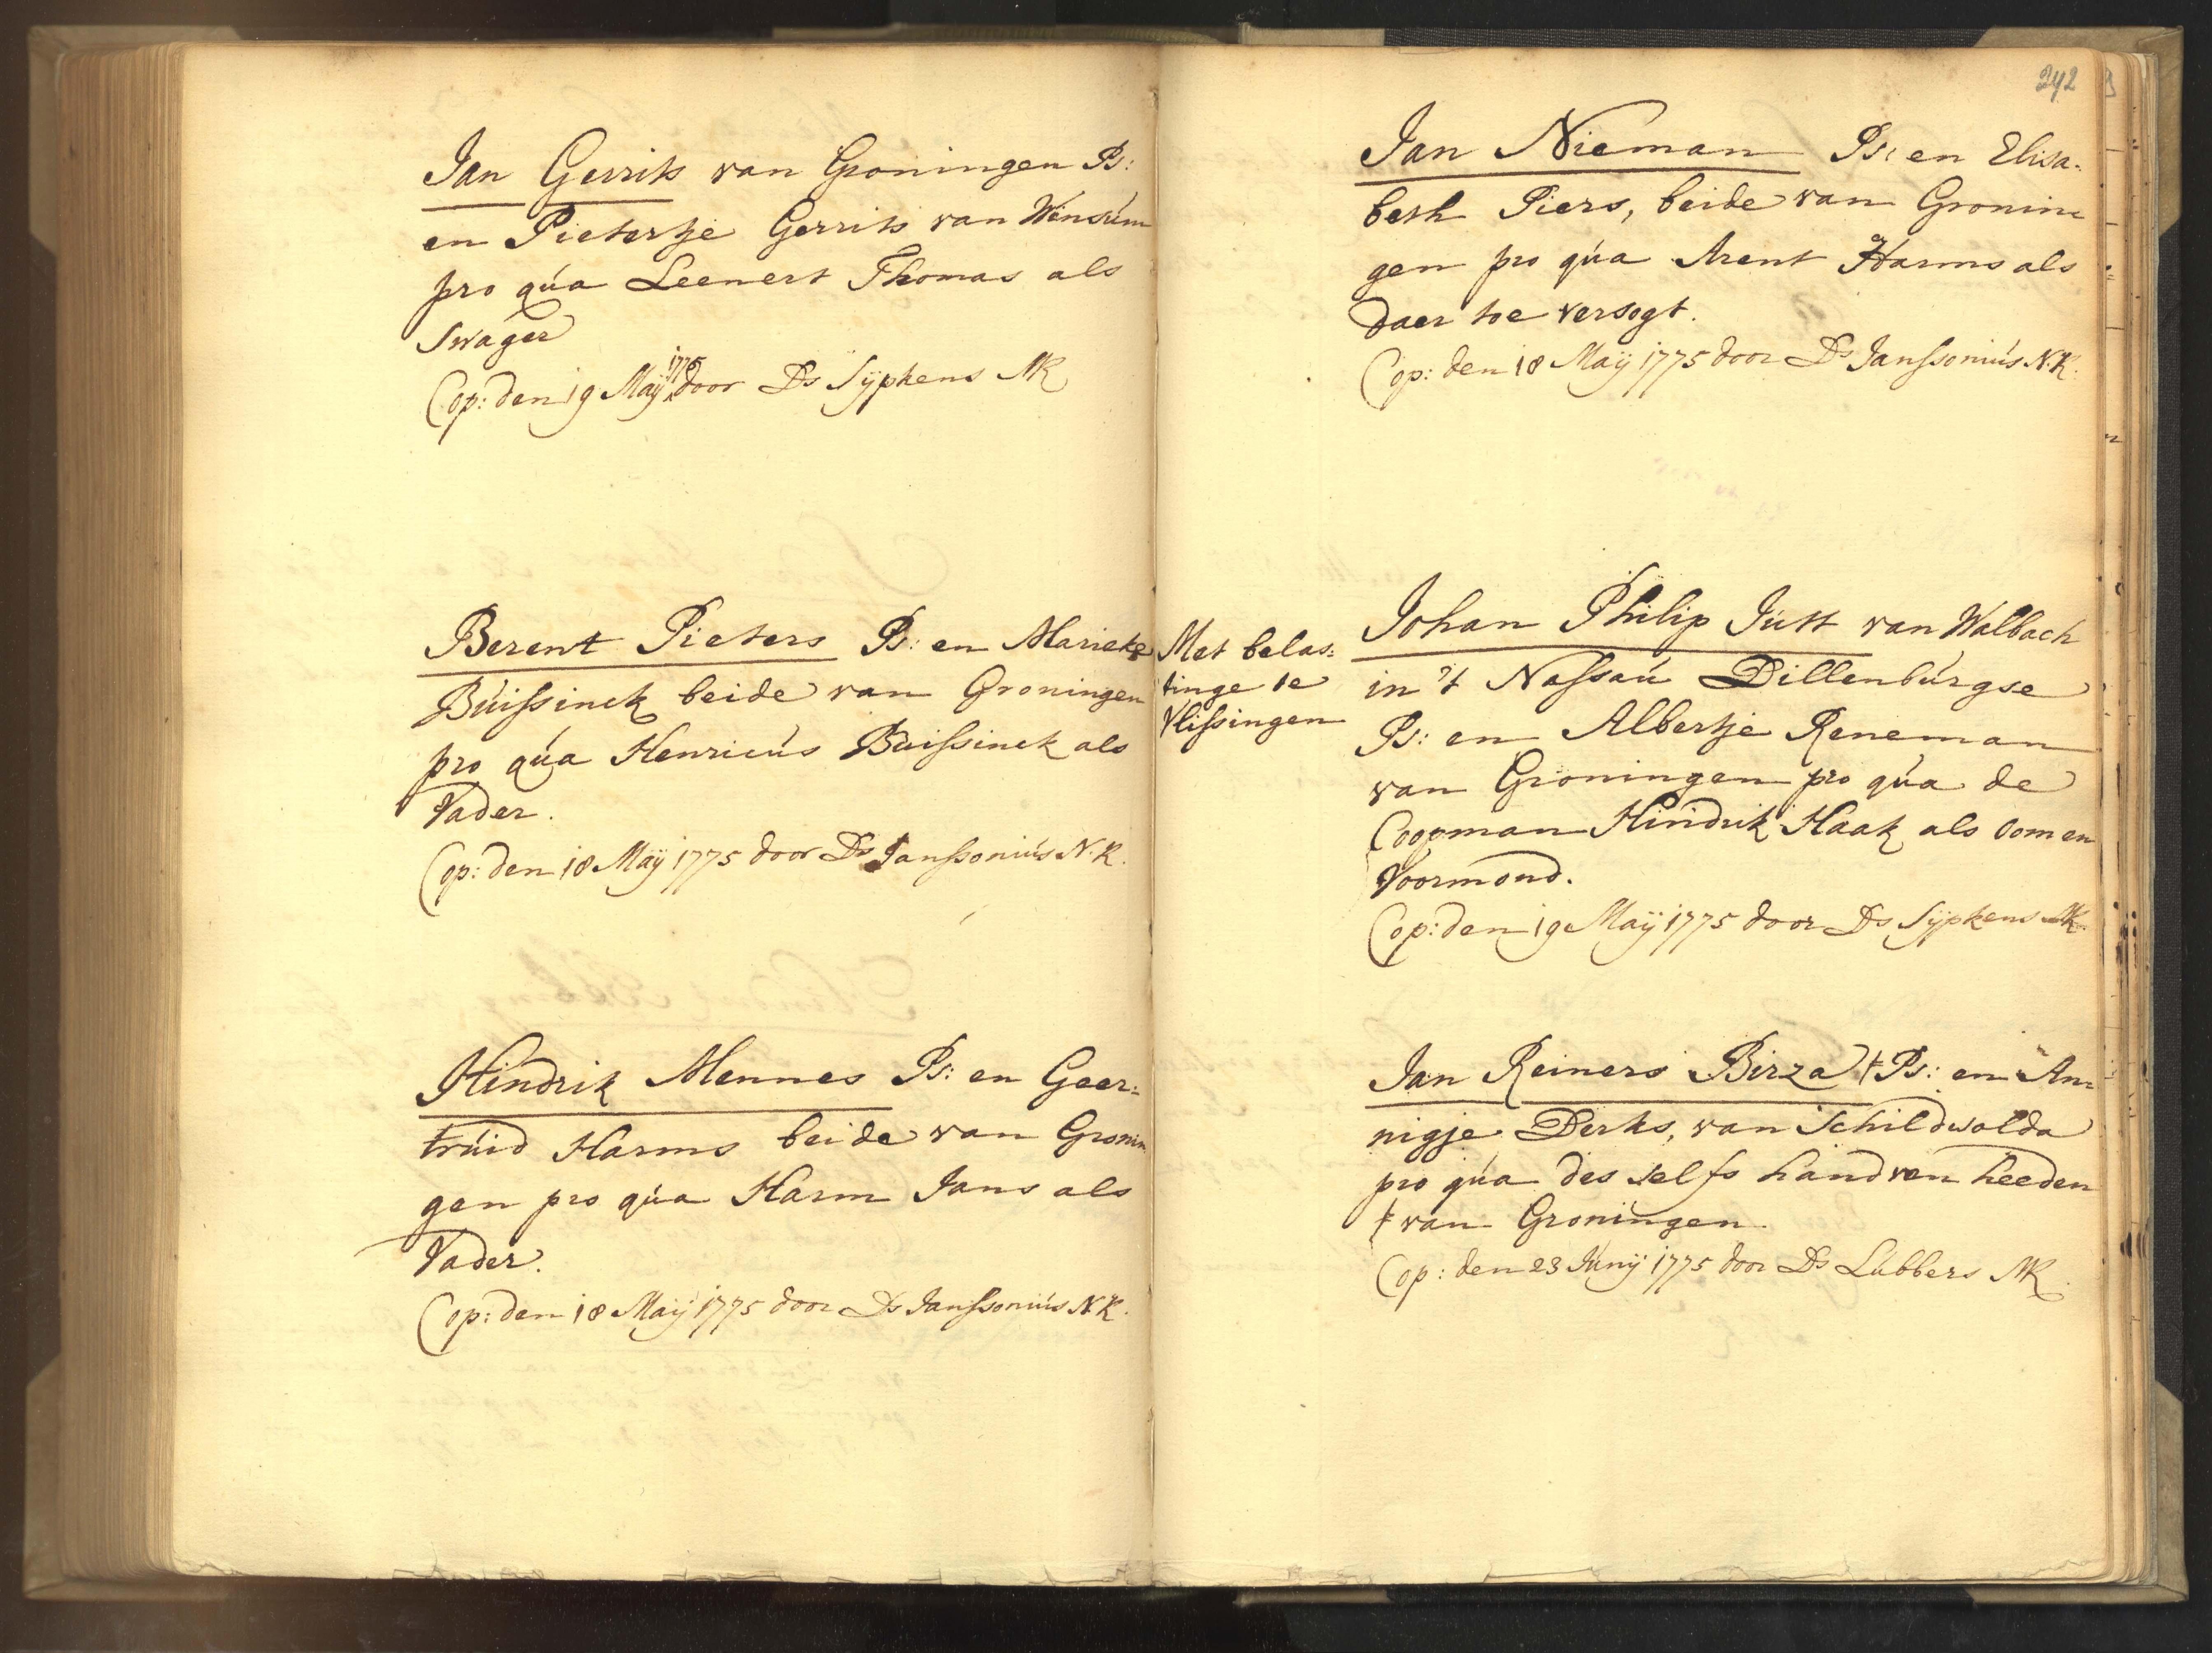 Jan Gerrits van Groningen Ps:
en Pietertje Gerrits van Winsúm
pro qúa Leenert Thomas als
Swager
Cop: den 19 Maÿ 1775 door Ds Sÿpkens AK
Berent Pieters Ps: en Marieke
Búissinck beide van Groningen
pro qúa Henricús Búissinck als
Vader.
Cop: den 18 Maÿ 1775 door Ds Janssoniús N.K.
Hindrik Mennes Ps: en Geer:
trúid Harms beide van Gronin
gen pro qúa Harm Jans als
Vader.
Cop: den 18 Maÿ 1775 door Ds Janssoniús N.K.
242
Jan Nieman Ps: en Elisa:
beth Piers, beide van Gronin:
gen pro qúa Arent Harms als
daer toe versogt.
Cop: den 18 Maÿ 1775 door Ds Janssoniús N.K.
Met belas:
tinge te
Vlissingen
Johan Philip Jútt van Walbach
in 't Nassaú Dillenbúrgse
Ps: en Albertje Reneman
van Groningen pro qúa de
Coopman Hindrik Haak als Oom en
Voormond.
Cop: den 19 Maÿ 1775 door Ds Sÿpkens AK
Jan Reiners Birza ‡ Ps: en An:
nigje Derks, van Schildwolda
pro qúa des selfs hand van heeden
‡ van Groningen.
Cop: den 23 Júnÿ 1775 door Ds Lúbbers AK